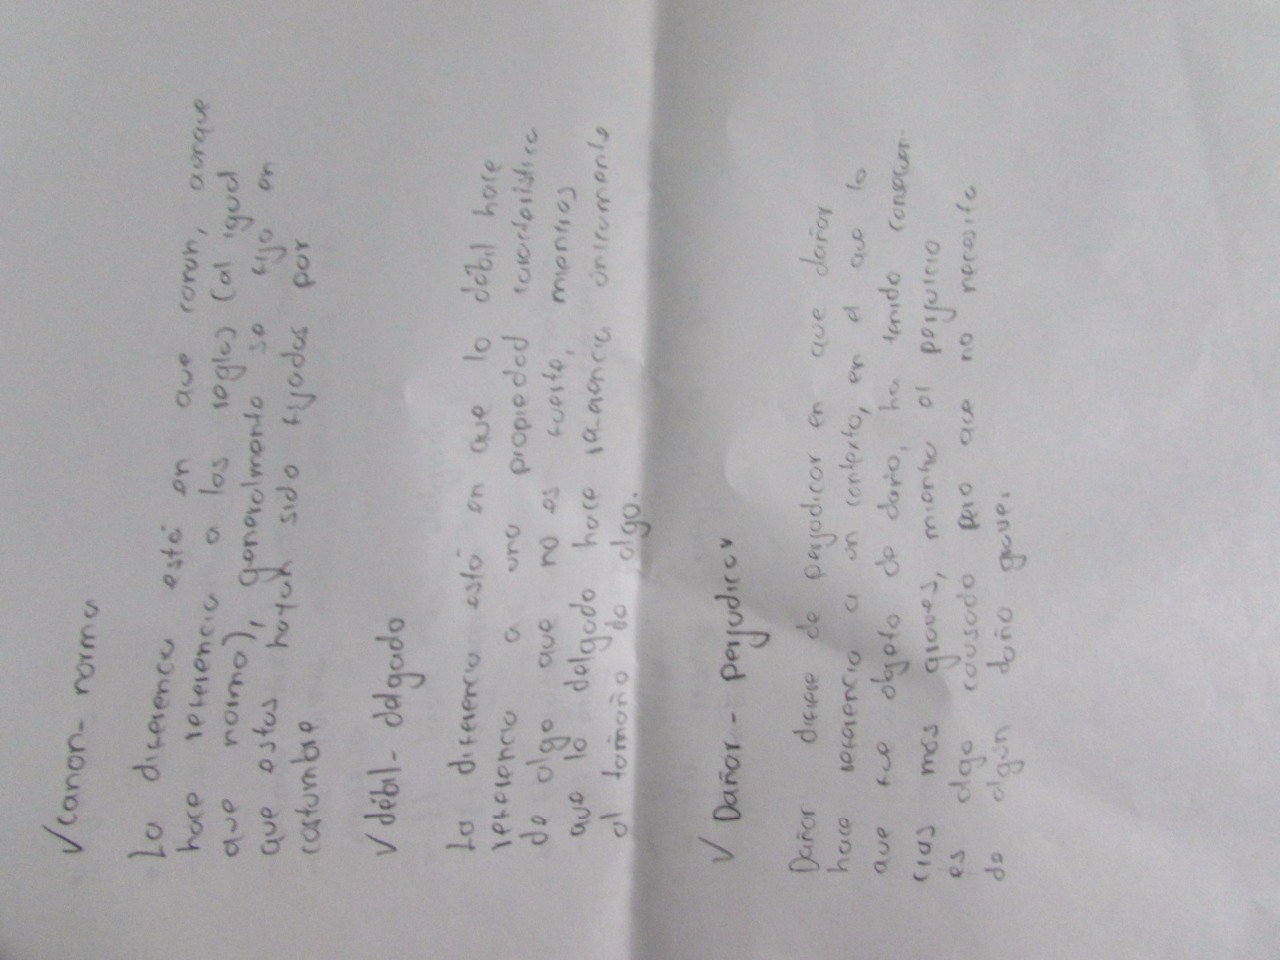 √ canon - norma
La diferencia está en que canon, aunque
hace referencia a las reglas (al igual
que norma), generalmente se fija en
que estas hayan sido fijadas por
costumbre
√ débil - delgado
La diferencia está en que lo débil hace
referencia a una propiedad característica
de algo que no es fuerte, mientras
que lo delgado hace referencia únicamente
al tamaño de algo.
√ Dañar - perjudicar
Dañar difiere de perjudicar en que dañar
hace referencia a un contexto, en el que lo
que fue objeto de daño, ha tenido consecuen-
cias más graves, mientra el perjuicio
es algo causado pero que no necesita
de algún daño grave.